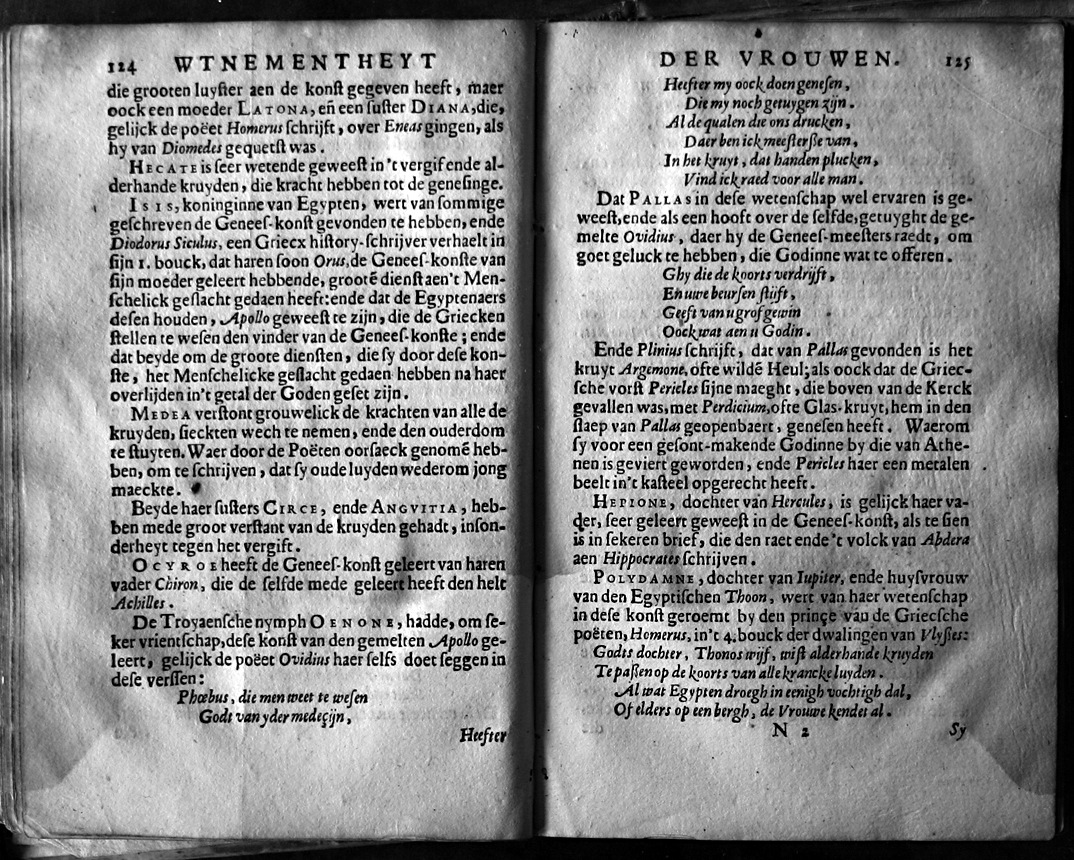 124 WTNEMENTHEYT
die grooten luyſter aen de konſt gegeven heeft, maer
oock een moeder LATONA, en̄ een ſuſter DIANA, die,
gelijck de poëet Homerus ſchrijft, over Eneas gingen, als
hy van Diomedes gequetſt was.
HECATE is ſeer wetende geweeſt in 't vergif ende al-
derhande kruyden, die kracht hebben tot de geneſinge.
ISIS, koninginne van Egypten, wert van ſommige
geſchreven de Geneeſ-konſt gevonden te hebben, ende
Diodorus Siculus, een Griecx hiſtory-ſchrijver verhaelt in
ſijn 1. bouck, dat haren ſoon Orus, de Geneeſ-konſte van
ſijn moeder geleert hebbende, grootē dienſt aen't Men-
ſchelick geſlacht gedaen heeft: ende dat de Egyptenaers
deſen houden, Apollo geweeſt te zijn, die de Griecken
ſtellen te weſen den vinder van de Geneeſ-konſte; ende
dat beyde om de groote dienſten, die ſy door deſe kon-
ſte, het Menſchelicke geſlacht gedaen hebben na haer
overlijden in't getal der Goden geſet zijn.
MEDEA verſtont grouwelick de krachten van alle de
kruyden, ſieckten wech te nemen, ende den ouderdom
te ſtuyten. Waer door de Poëten oorſaeck genomē heb-
ben, om te ſchrijven, dat ſy oude luyden wederom jong
maeckte.
Beyde haer ſuſters CIRCE, ende ANGVITIA, heb-
ben mede groot verſtant van de kruyden gehadt, inſon-
derheyt tegen het vergift.
OCYROE heeft de Geneeſ-konſt geleert van haren
vader Chiron, die de ſelfde mede geleert heeft den helt
Achilles.
De Troyaenſche nymph OENONE, hadde, om ſe-
ker vrientſchap, deſe konſt van den gemelten Apollo ge-
leert, gelijck de poëet Ovidius haer ſelfs doet ſeggen in
deſe verſſen:
Phœbus, die men weet te weſen
Godt van yder medecijn,
Heefter
DER VROUWEN. 125
Heefter my oock doen geneſen,
Die my noch getuygen zijn.
Al de qualen die ons drucken,
Daer ben ick meeſterſſe van,
In het kruyt, dat handen plucken,
Vind ick raed voor alle man.
Dat PALLAS in deſe wetenſchap wel ervaren is ge-
weeſt, ende als een hooft over de ſelfde, getuyght de ge-
melte Ovidius, daer hy de Geneeſ-meeſters raedt, om
goet geluck te hebben, die Godinne wat te offeren.
Ghy die de koorts verdrijft,
En uwe beurſen ſtijft,
Geeft van u grof gewin
Oock wat aen u Godin.
Ende Plinius ſchrijft, dat van Pallas gevonden is het
kruyt Argemone, ofte wildē Heul; als oock dat de Griec-
ſche vorſt Pericles ſijne maeght, die boven van de Kerck
gevallen was, met Perdicium, ofte Glas-kruyt, hem in den
ſlaep van Pallas geopenbaert, geneſen heeft. Waerom
ſy voor een geſont-makende Godinne by die van Athe-
nen is geviert geworden, ende Pericles haer een metalen
beelt in't kaſteel opgerecht heeft.
HEPIONE, dochter van Hercules, is gelijck haer va-
der, ſeer geleert geweeſt in de Geneeſ-konſt, als te ſien
is in ſekeren brief, die den raet ende 't volck van Abdera
aen Hippocrates ſchrijven.
POLYDAMNE, dochter van Iupiter, ende huyſvrouw
van den Egyptiſchen Thoon, wert van haer wetenſchap
in deſe konſt geroemt by den prinçe van de Griecſche
poëten, Homerus, in't 4. bouck der dwalingen van Vlyſſes:
Godts dochter, Thonos wijf, wiſt alderhande kruyden
Te paſſen op de koorts van alle krancke luyden.
Al wat Egypten droegh in eenigh vochtigh dal,
Of elders op een bergh, de Vrouwe kendet al.
N 2 Sy